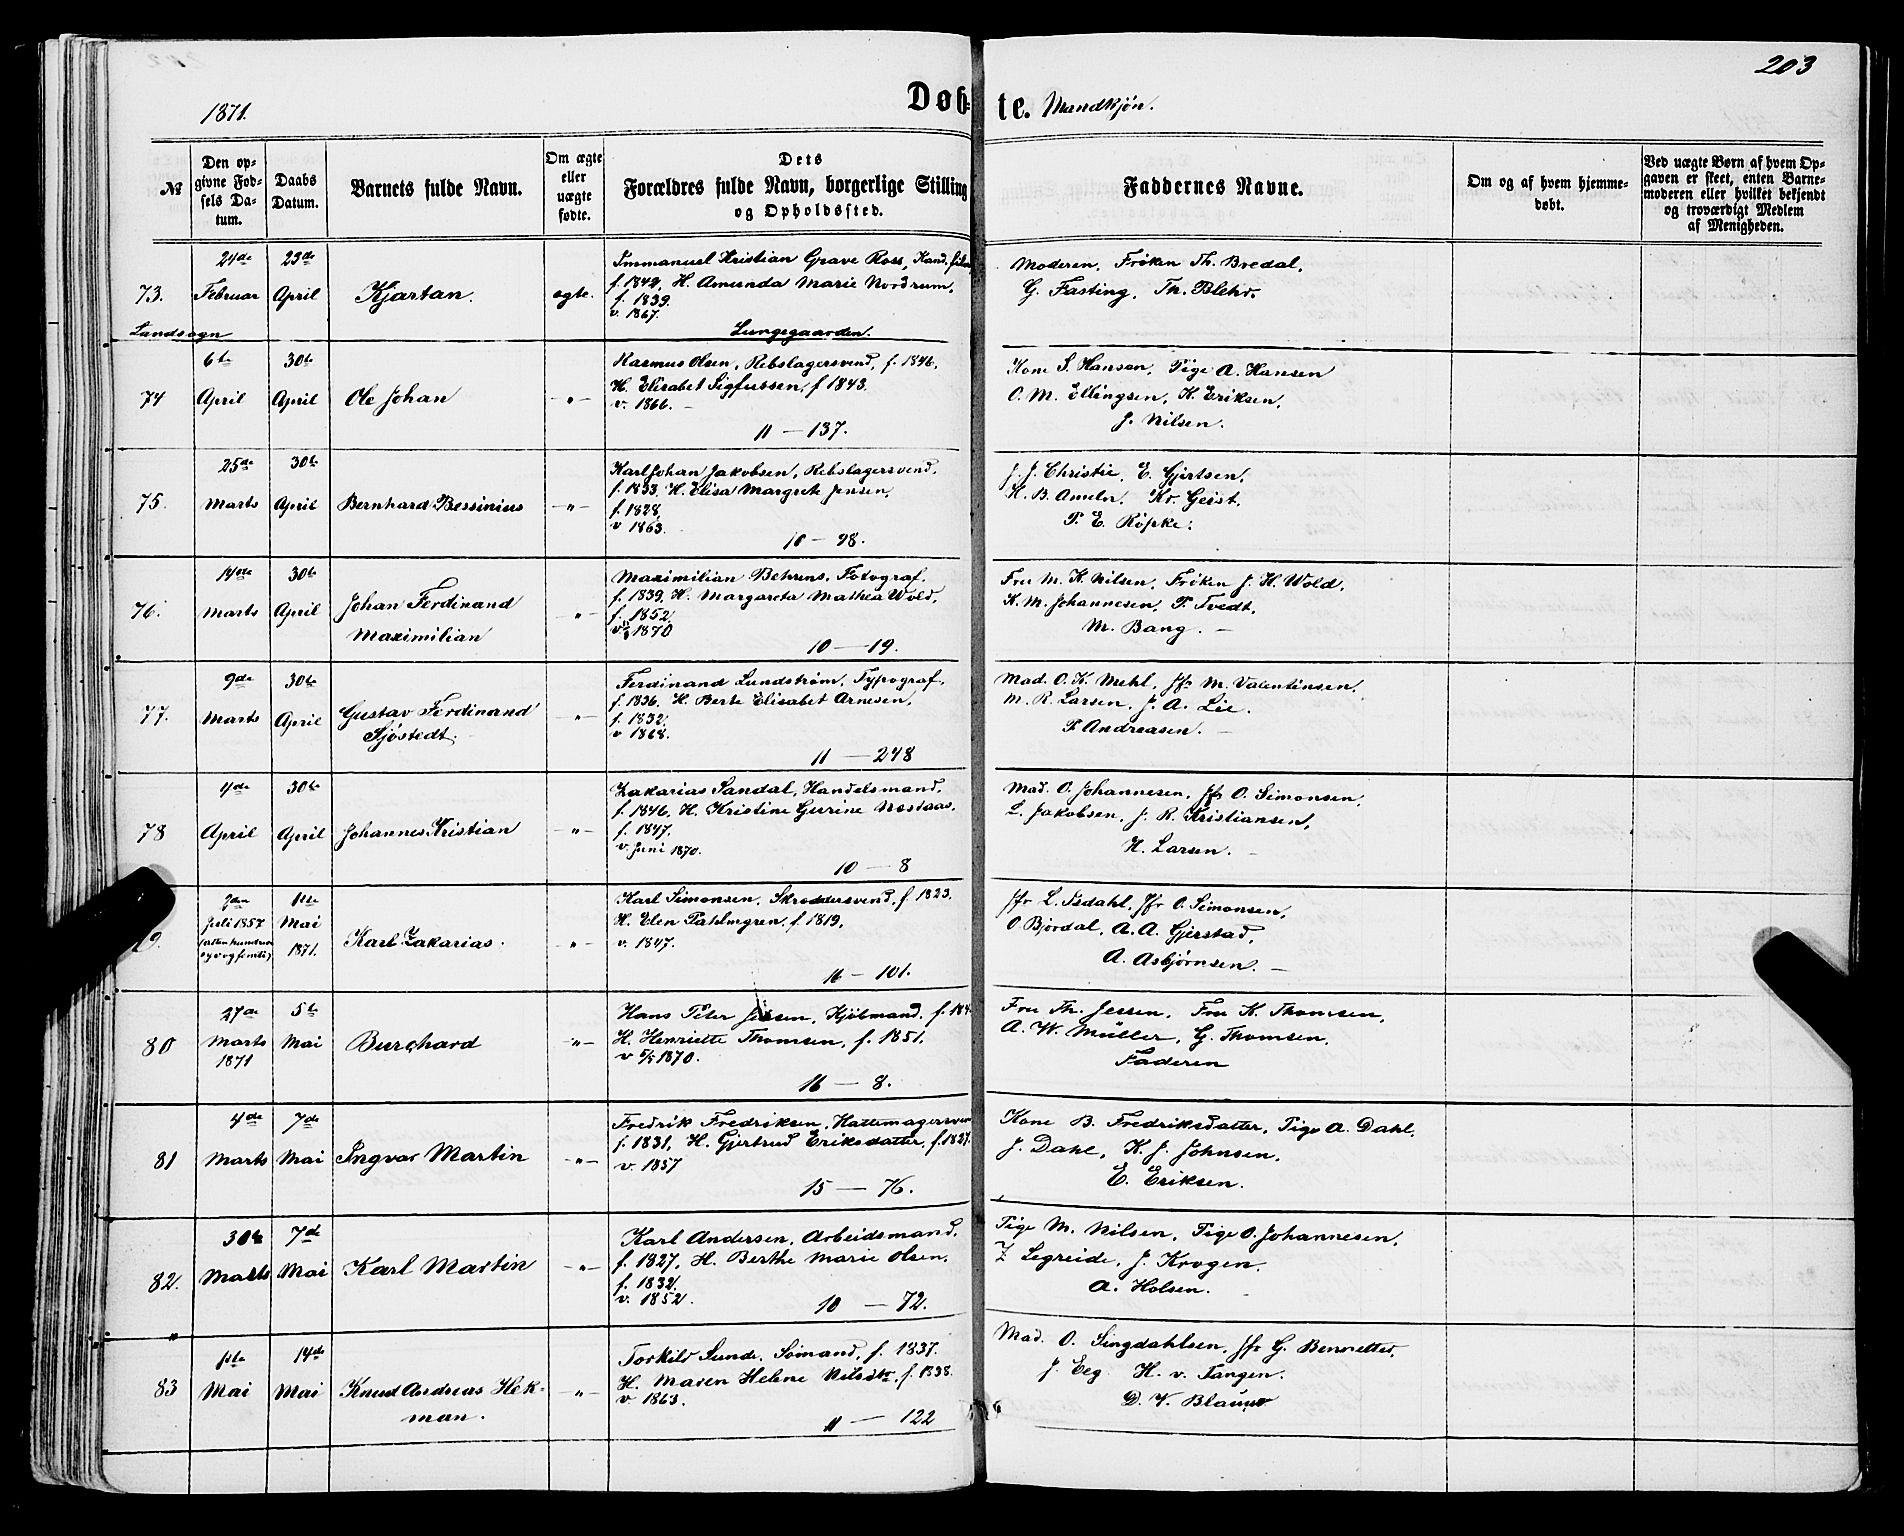 203
1871.
Døbte. Mandkjøn.
№
Den opgivne Fødsels Datum.
Daabs Datum.
Barnets fulde Navn.
Om ægte eller uægte fødte.
Dets Forældres fulde Navn, borgerlige Stilling og Opholdssted.
Faddernes Navne.
Om og af hvem hjemmedøbt.
Ved uægte Børn af hvem Opgaven er skeet, enten Barnemoderen eller hvilket bekjendt og troværdigt Medlem af Menigheden.
24de 23de
73. Februar April Kjartan. egte.
Landsogn
Immanuel Kristian Grave Ross, Kand.
f. 1842, H. Amunda Marie Nordrum,
f. 1839.
v. 1867.
Lungegaarden.
Moderen, Frøken Th. Bredal,
G. Fasting, Th. Blehr.
6te 30te
74 April April Ole Johan —"—
Rasmus Olsen, Rebslagersvend, f. 1846,
H. Elisabet Sigfussen, f 1843.
v. 1866. —
11 — 137.
Kone S. Hansen, Pige A. Hansen
O. M. Ellingsen, K. Eriksen,
J. Nilsen.
25de 30te
75. Marts April Bernhard Bessinius —"—
Karl Johan Jakobsen, Rebslagersvend,
f. 1833, H. Elisa Margrete Jensen,
f. 1828,
v 1863.
10 — 98.
J. J. Christie, E. Gjertsen,
H. B. Ameln, Kr. Geist,
P. E. Röpke.
14de 30te
76. Marts April Johan Ferdinand
Maximilian —"—
Maximilian Behrens, Fotograf,
f. 1839, H. Margareta Mathea Wold,
f. 1852,
v 1870
10 — 19.
Fru M. K. Nilsen, Frøken J. H. Wold,
K. M. Johannesen, P. Tvedt,
M. Bang. —
9de 30te
77. Marts April Gustav Ferdinand
Sjöstedt. —"—
Ferdinand Lundstrøm, Typograf,
f. 1836, H. Berte Elisabet Arnesen,
f. 1832,
v 1868.
11 — 248
Mad. O. K. Mehl, Jfr M. Valentinsen,
M. R. Larsen, J. A. Lie.
P Andreasen. —
4de 30te
78 April April Johannes Kristian —"—
Zakarias Sandal, Handelsmand,
f. 1846, H. Kristine Gurine Næstaas,
f. 1847.
v. Juni 1870.
10 — 8
Mad. O. Johannesen, Jfr O. Simonsen,
L. Jakobsen, J. R. Kristiansen,
H. Larsen. —
1ste
Juli 1857 Mai
(atten hundrede
syv og femti) 1871.
9. Karl Zakarias. —"—
Karl Simonsen, Skreddersvend, f. 1823.
H. Elen Pahlmgren, f. 1819,
v. 1847.
16 — 101.
Jfr L. Isdahl, Jfr O. Simonsen,
O Bjordal, A. A. Gjerstad,
A. Asbjørnsen. —
27de 5te
80 Marts Mai Burchard —"—
1871
Hans Peter Jessen, Kjøbmand. f. 184
H. Henriette Thomsen, f. 1851,
v 5/5 1870.
16 — 8.
Fru Th. Jessen, Fru K. Thomsen,
A. W. Müller, G. Thomsen,
Faderen
4de 7de
81 Marts Mai Ingvar Martin —"—
Fredrik Fredriksen, Hattemagersven
f. 1831, H. Gjertrud Eriksdatter, f. 1827.
v. 1857
15 — 76.
Kone B. Fredriksdatter, Pige A. Dahl,
J. Dahl, K. J. Johnsen,
E. Eriksen.
30te 7de
82. Marts Mai Karl Martin —"—
Karl Andersen, Arbeidsmand,
f. 1827, H. Berthe Marie Olsen,
f. 1832.
v. 1852.
10 — 72.
Pige M. Nilsen, Pige O. Johannesen,
Z Legreide, J. Krogen.
A. Holsen.
1ste 14de
83 Mai Mai Knud Andreas Hekman. —"—
Torkild Sunde, Sømand, f. 1837.
H. Maren Helene Nilsdtr, f. 1838.
v. 1863.
11 — 122
Mad. O. Singdahlsen, Jfr G. Bennetter,
J. Eeg H. v. Tangen.
D. V. Blaauw